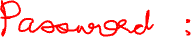 Password :